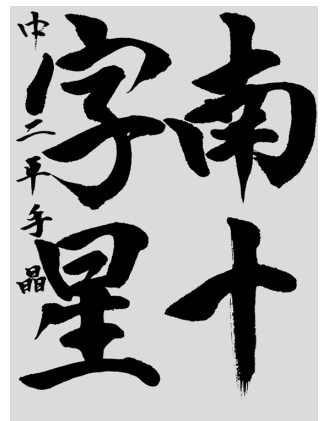 南十
字星
中二 平手晶